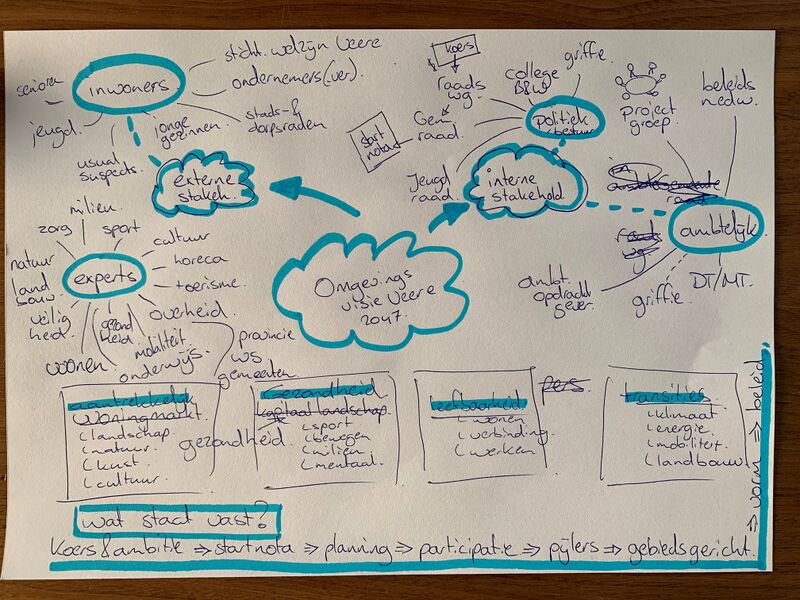 sticht. welzijn Veere
inwoners
senioren
ondernemers(ver)
jeugd
jonge
gezinnen
stads-&
dorpsraden
usual
suspects
externe
stakeh.
koers
griffie
raads
wg.
college
B&W
Gem
raad
start
nota
politiek
bestuur
Jeugd
raad
interne
stakehold
project
groep
beleids
medw.
raad
ambtelijk
raads
wg
ambt.
opdracht
gever.
griffie
DT/MT.
milieu
zorg
sport
natuur
land
bouw
experts
cultuur
horeca
toerisme
veilig
heid
overheid
wonen
gezond
heid
mobiliteit
onderwijs
provincie
ws
gemeenten
Omgevings
visie Veere
2047.
aantrekkelijk
woningmarkt
landschap
natuur
kunst
cultuur
gezondheid
Gezondheid
kapitaal landschap
sport
bewegen
milieu
mentaal.
leefbaarheid
wonen
verbinding
werken
pers
transities
klimaat
energie
mobiliteit
landbouw
wat staat vast?
Koers & ambitie ⇒ startnota ⇒ planning ⇒ participatie ⇒ pijlers ⇒ gebiedsgericht.
⇒ vorm ⇒ beleid